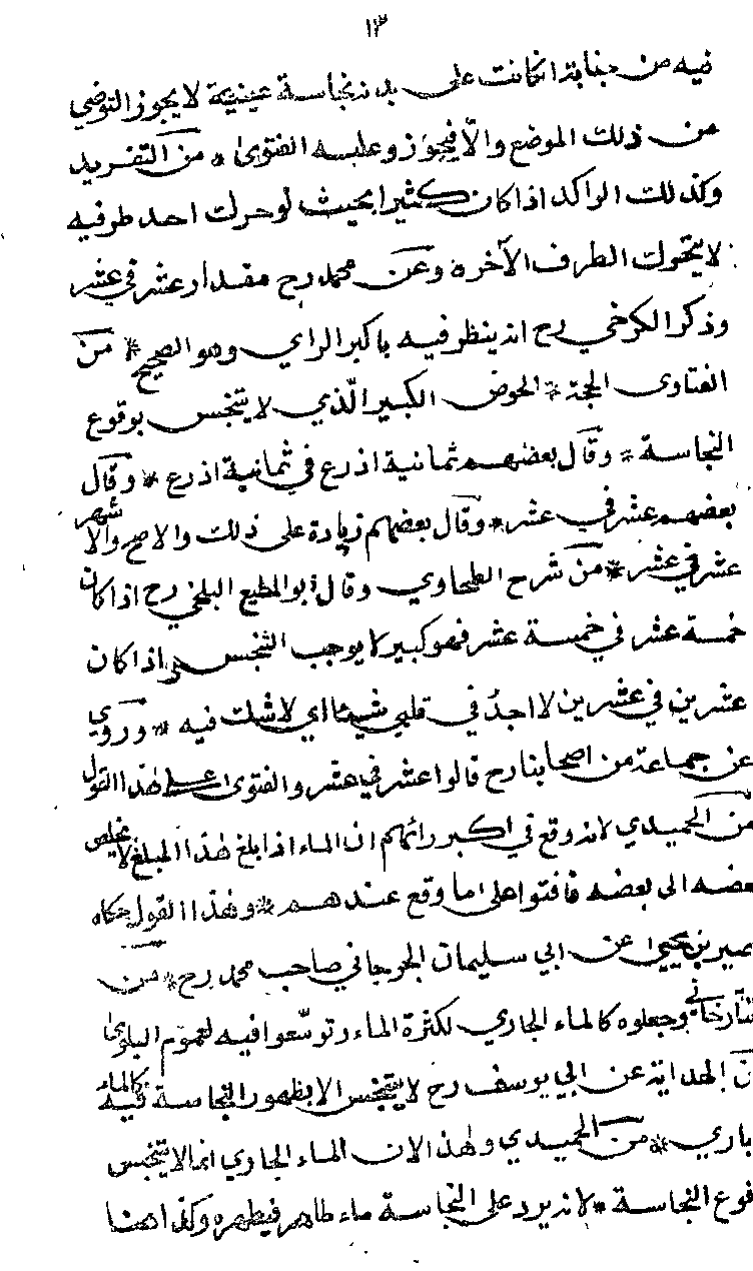 ١٣
فيه من جنابة ان كانت على بدنه نجاسة عينية لا يجوز التوضي
من ذلك الموضع والّا فيجوز وعليه الفتوىٰ * من التفريد
وكذلك الراكد اذا كان كثيرا بحيث لوحرك احد طرفيه
لا يتحرك الطرف الآخر ة وعن محمد رح مقدار عشر في عشر
وذكر الكرخي رح انه ينظر فيه باكبر الراي وهو الصحيح * من
الفتاوى الحجة * الحوض الكبير الّذي لا يتنجس بوقوع
النجاسة * وقال بعضهم ثمانية اذرع في ثمانية اذرع * وقال
بعضهم عشر في عشر * وقال بعضهم زيادة على ذلك والاصح والاشهر
عشر في عشر * من شرح الطحاوي وقال ابو المطيع البلخي رح اذا كان
خمسة عشر في خمسة عشر فهو كبير لا يوجب التنجس واذا كان
عشرين في عشرين لا اجدُ في قلبي شيئا اي لاشك فيه * وروي
عن جماعة من اصحابنا رح قالوا عشر في عشر والفتوى على هذا القول
من الحميدي لانه وقع في اكبر رائهم ان الماء اذا بلغ هذا المبلغ لا يخلص
بعضه الى بعضه فافتوا على ما وقع عندهم * وهذا القول حكاه
نصير بن يحيىٰ عن ابي سليمان الجوجاني صاحب محمد رح * من
تتارخاني وجعلوه كالماء الجاري لكثرة الماء وتوسّعوا فيه لعموم البلوىٰ
من الهداية عن ابي يوسف رح لا يتنجس الا بظهور النجاسة فيه كالماء
الجاري * من الحميدي وهذا لان الماء الجاري انما لا يتنجس
بوقوع النجاسة * لانه يرد على النجاسة ماء طاهر فيطهره وكذا هنا